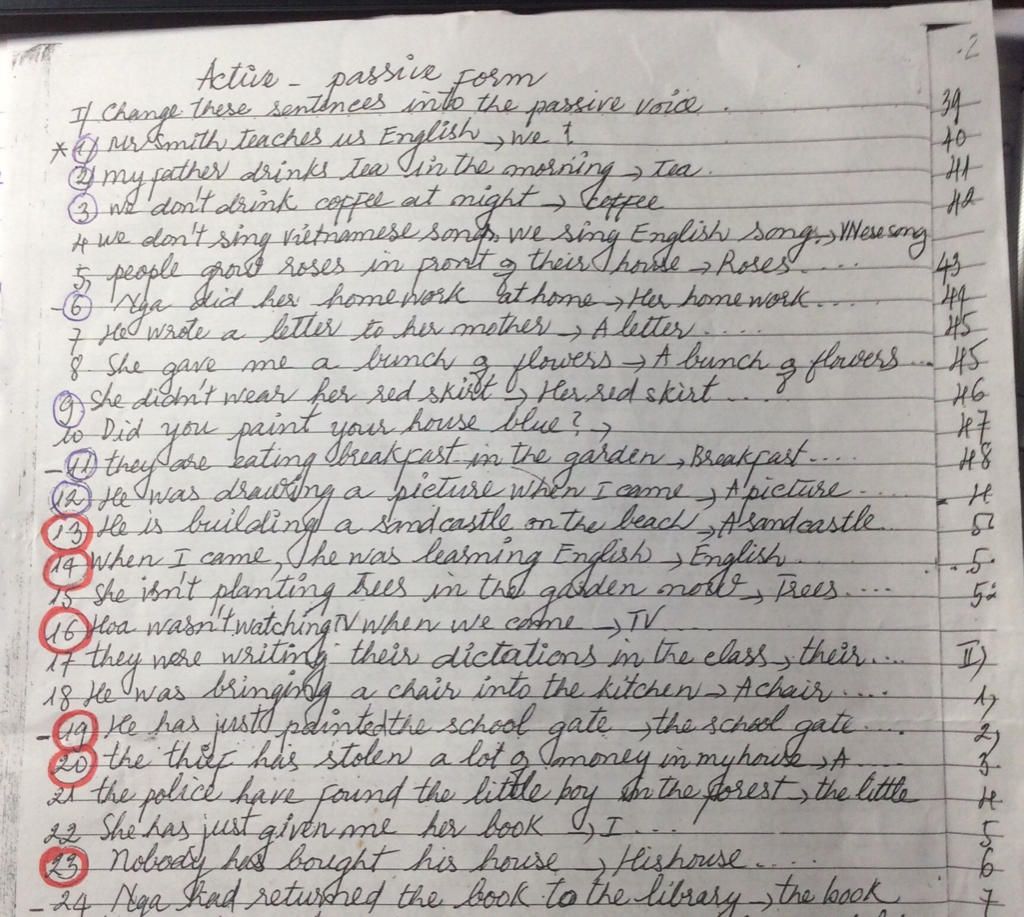 Active - passive Form
I/ Change these sentences into the passive voice.
* 1) Mr Smith teaches us English → we
2) my father drinks tea in the morning → tea.
3 we don't drink coffee at night → coffee
4 we don't sing vietnamese songs, we sing English song. → VNese song
5, people grow roses in front of their house → Roses.....
- 6 Nga did her homework at home → Her homework....
7 He wrote a letter to her mother → A letter .....
8. She gave me a bunch of flowers → A bunch of flowers ...
9. She didn't wear her red skirt → Her red skirt ....
10 Did you paint your house blue? →
- 11 they are eating breakfast in the garden → Breakfast....
12 He was drawing a picture when I came → A picture ....
13 He is building a sandcastle on the beach → A sandcastle...
14 When I came, he was learning English → English....
15 She isn't planting trees in the garden now → Trees....
16 Hoa wasn't watching TV when we came → TV ....
17 they were writing their dictations in the class → their....
18 He was bringing a chair into the kitchen → A chair ....
- 19 He has just painted the school gate → the school gate ....
20 the thief has stolen a lot of money in my house → A ....
21 the police have found the little boy in the forest → the little
22 She has just given me her book → I ...
23 Nobody has bought his house → His house ....
- 24 Nga had returned the book to the library → the book
2
39
40
41
42
43
44
45
45
46
47
48
II)
1,
2,
3.
4
5
6
7